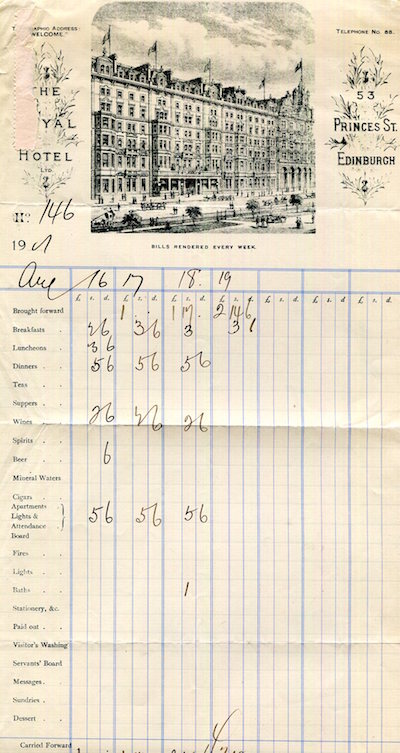 "WELCOME."
TELEPHONE No 68.
THE
HOTEL
LTD.
53
PRINCES ST.
EDINBURGH
No 146
190
BILLS RENDERED EVERY WEEK.
16 17 18. 19
£ s. d. £ s. d. £ s. d. £ s. d. £ s. d. £ s. d. £ s. d.
Brought forward 1 . . 1 17 . 2 14 6
Breakfasts . . 2 6 3 6 3 3 1
Luncheons . . 3 6
Dinners . . 5 6 5 6 5 6
Teas . .
Suppers . .
Wines . . 2 6 2 6 2 6
Spirits . .
Beer . . 6
Mineral Waters
Cigars . .
Apartments
Lights & 5 6 5 6 5 6
Attendance
Board
Fires . .
Lights . .
Baths . . 1
Stationery, &c.
Paid out . .
Visitor's Washing
Servants' Board
Messages . .
Sundries . .
Dessert . .
Carried Forward